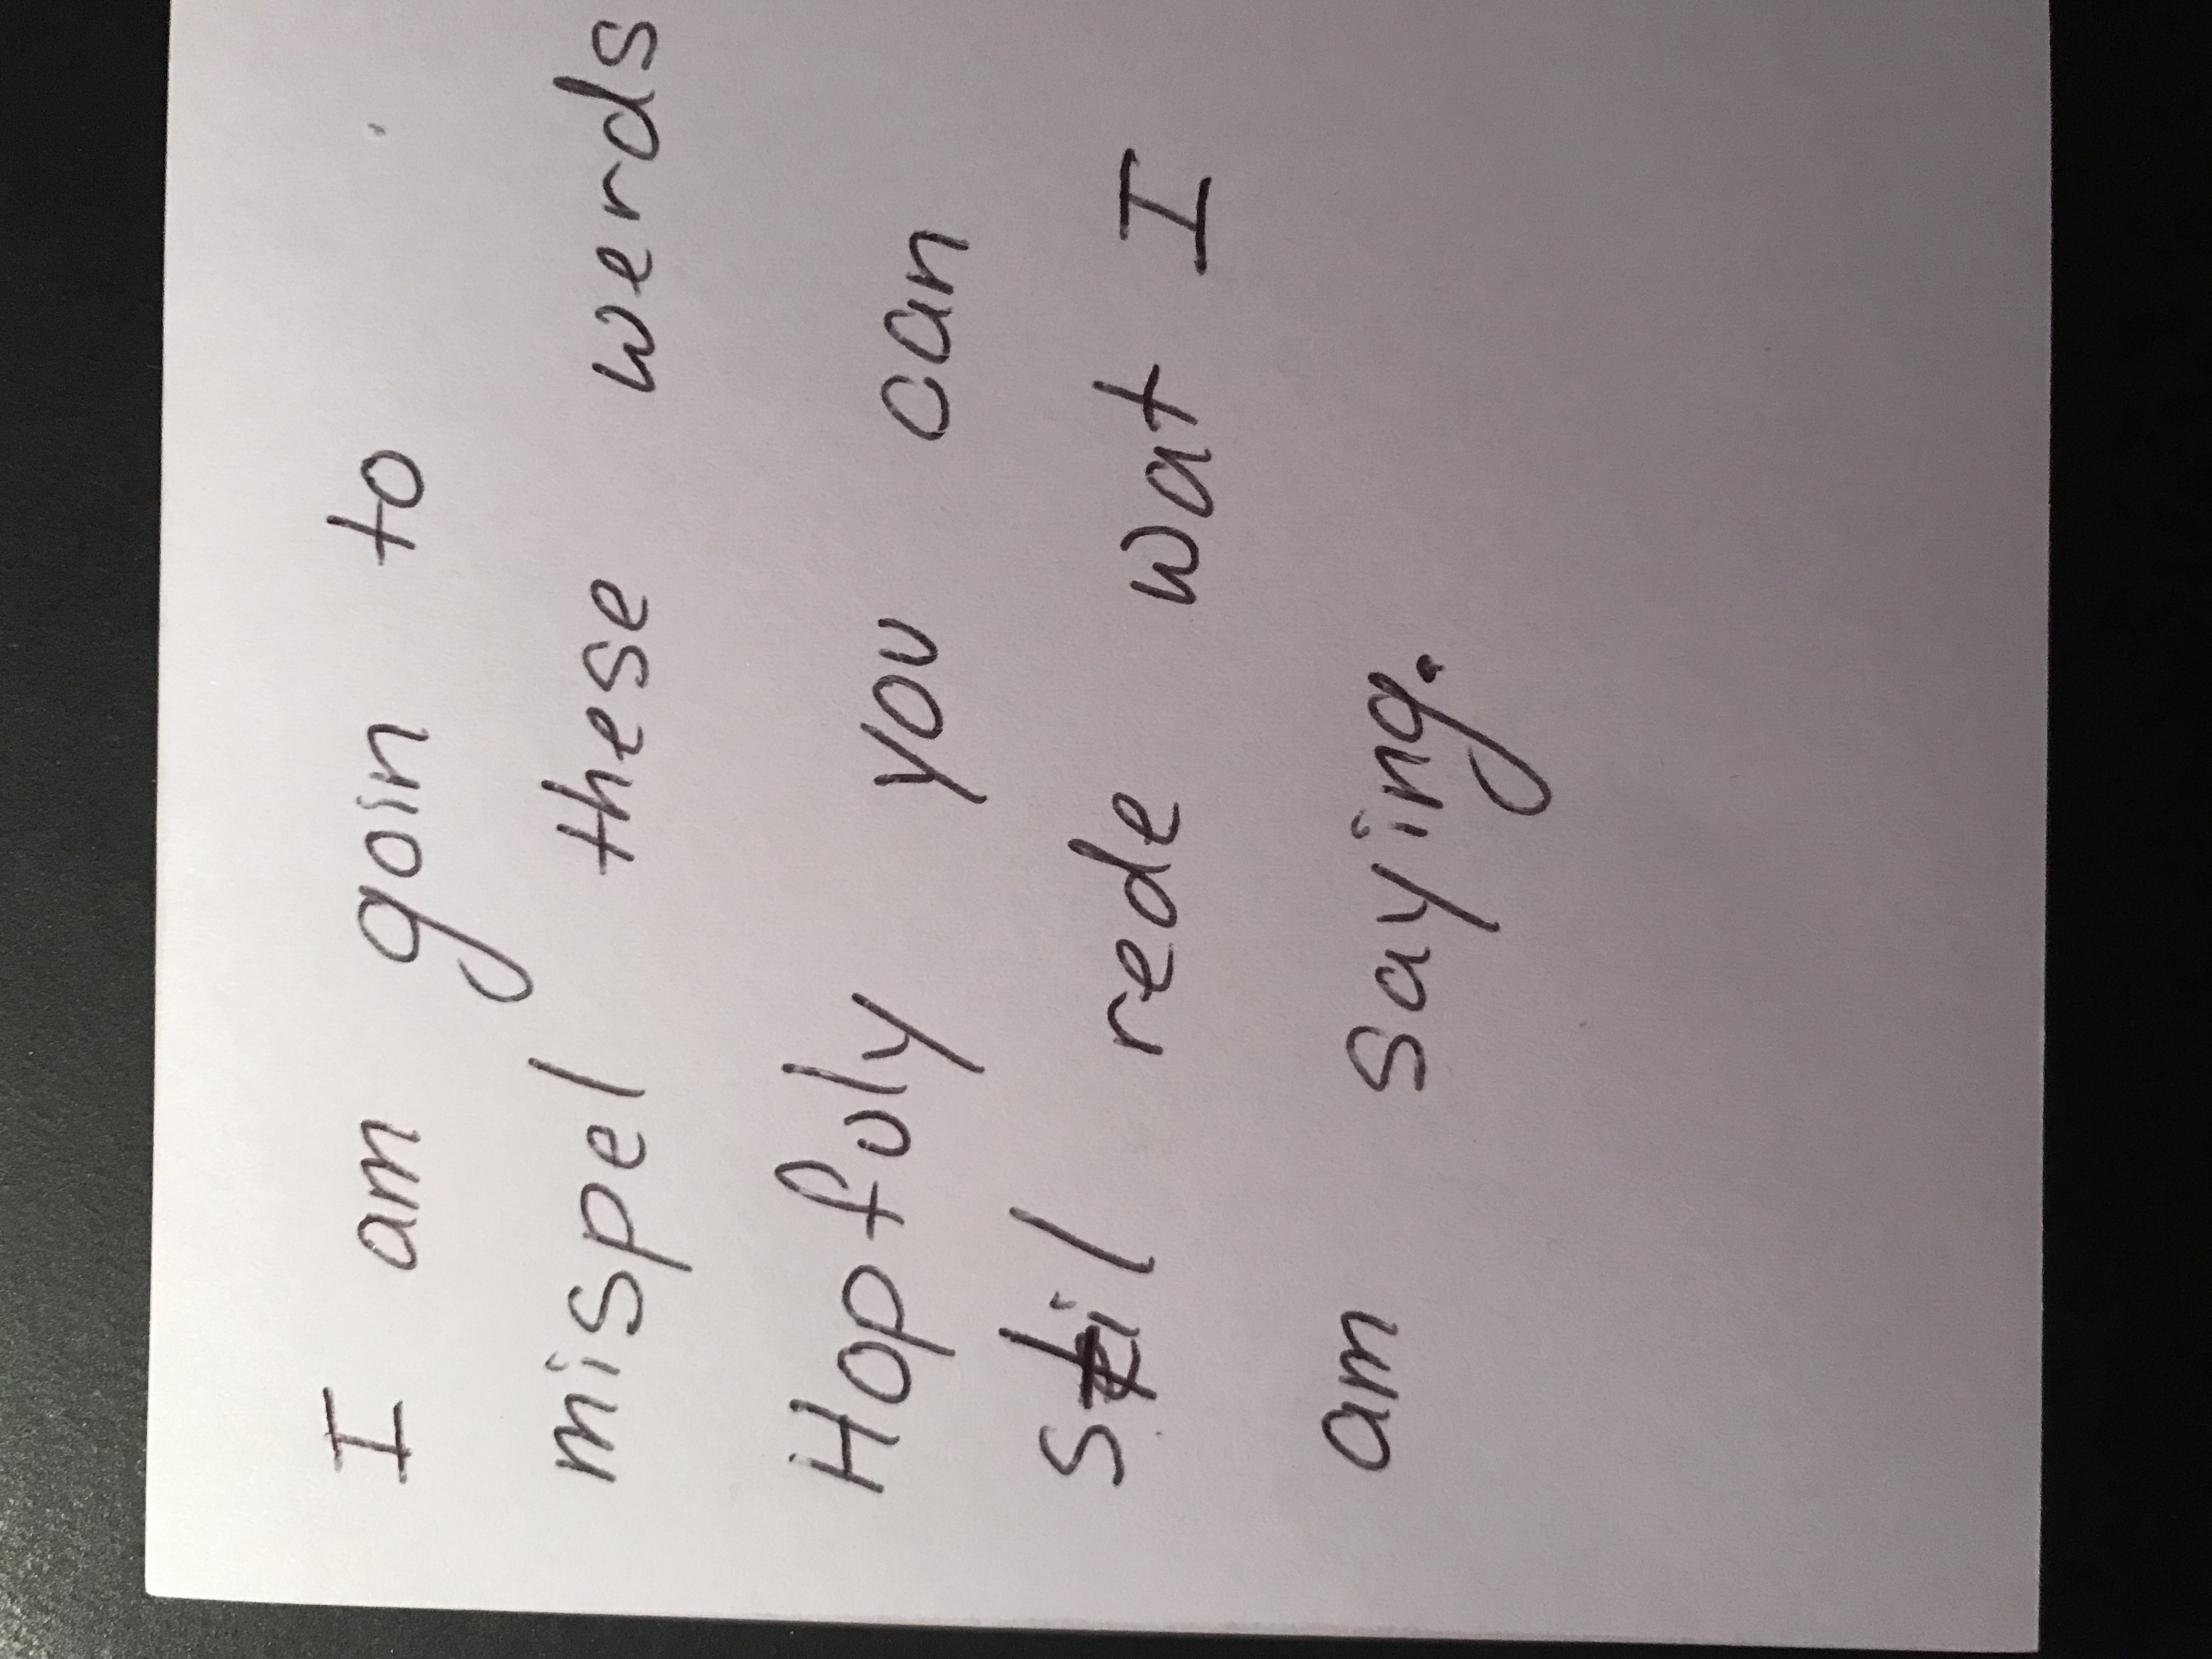 I am goin to
mispel these werds
Hopfuly you can
Stil rede wat I
am saying.